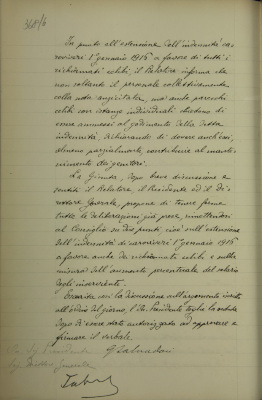 368/6
In punto all'estensione dell'indennità ca-
roviveri 1° gennaio 1916 a favore di tutti i
richiamati celibi, il Relatore informa che
non soltanto il personale collettivamente
colla nota, ma anche parecchi
celibi con istanze individuali chiedono di
venire ammessi al godimento della detta
indennità, dichiarando di dovere anch'essi,
almeno parzialmente contribuire al mante-
nimento dei genitori.
La Giunta, dopo breve discussione e
sentiti il Relatore, il Presidente ed il Di-
rettore Generale, propone di tenere ferme
tutte le deliberazioni già prese, rimettendosi
al Consiglio su due punti, cioè sull'estensione
dell'indennità di caroviveri 1° gennaio 1916
a favore anche dei richiamati celibi e sulla
misura dell'aumento percentuale del salario
degli inservienti.
Esaurita così la discussione sull'argomento inscritto
all'ordine del giorno, l'Ill. Presidente toglie la seduta
dopo di essere stato autorizzato ad approvare e
firmare il verbale.
Presidente
Generale